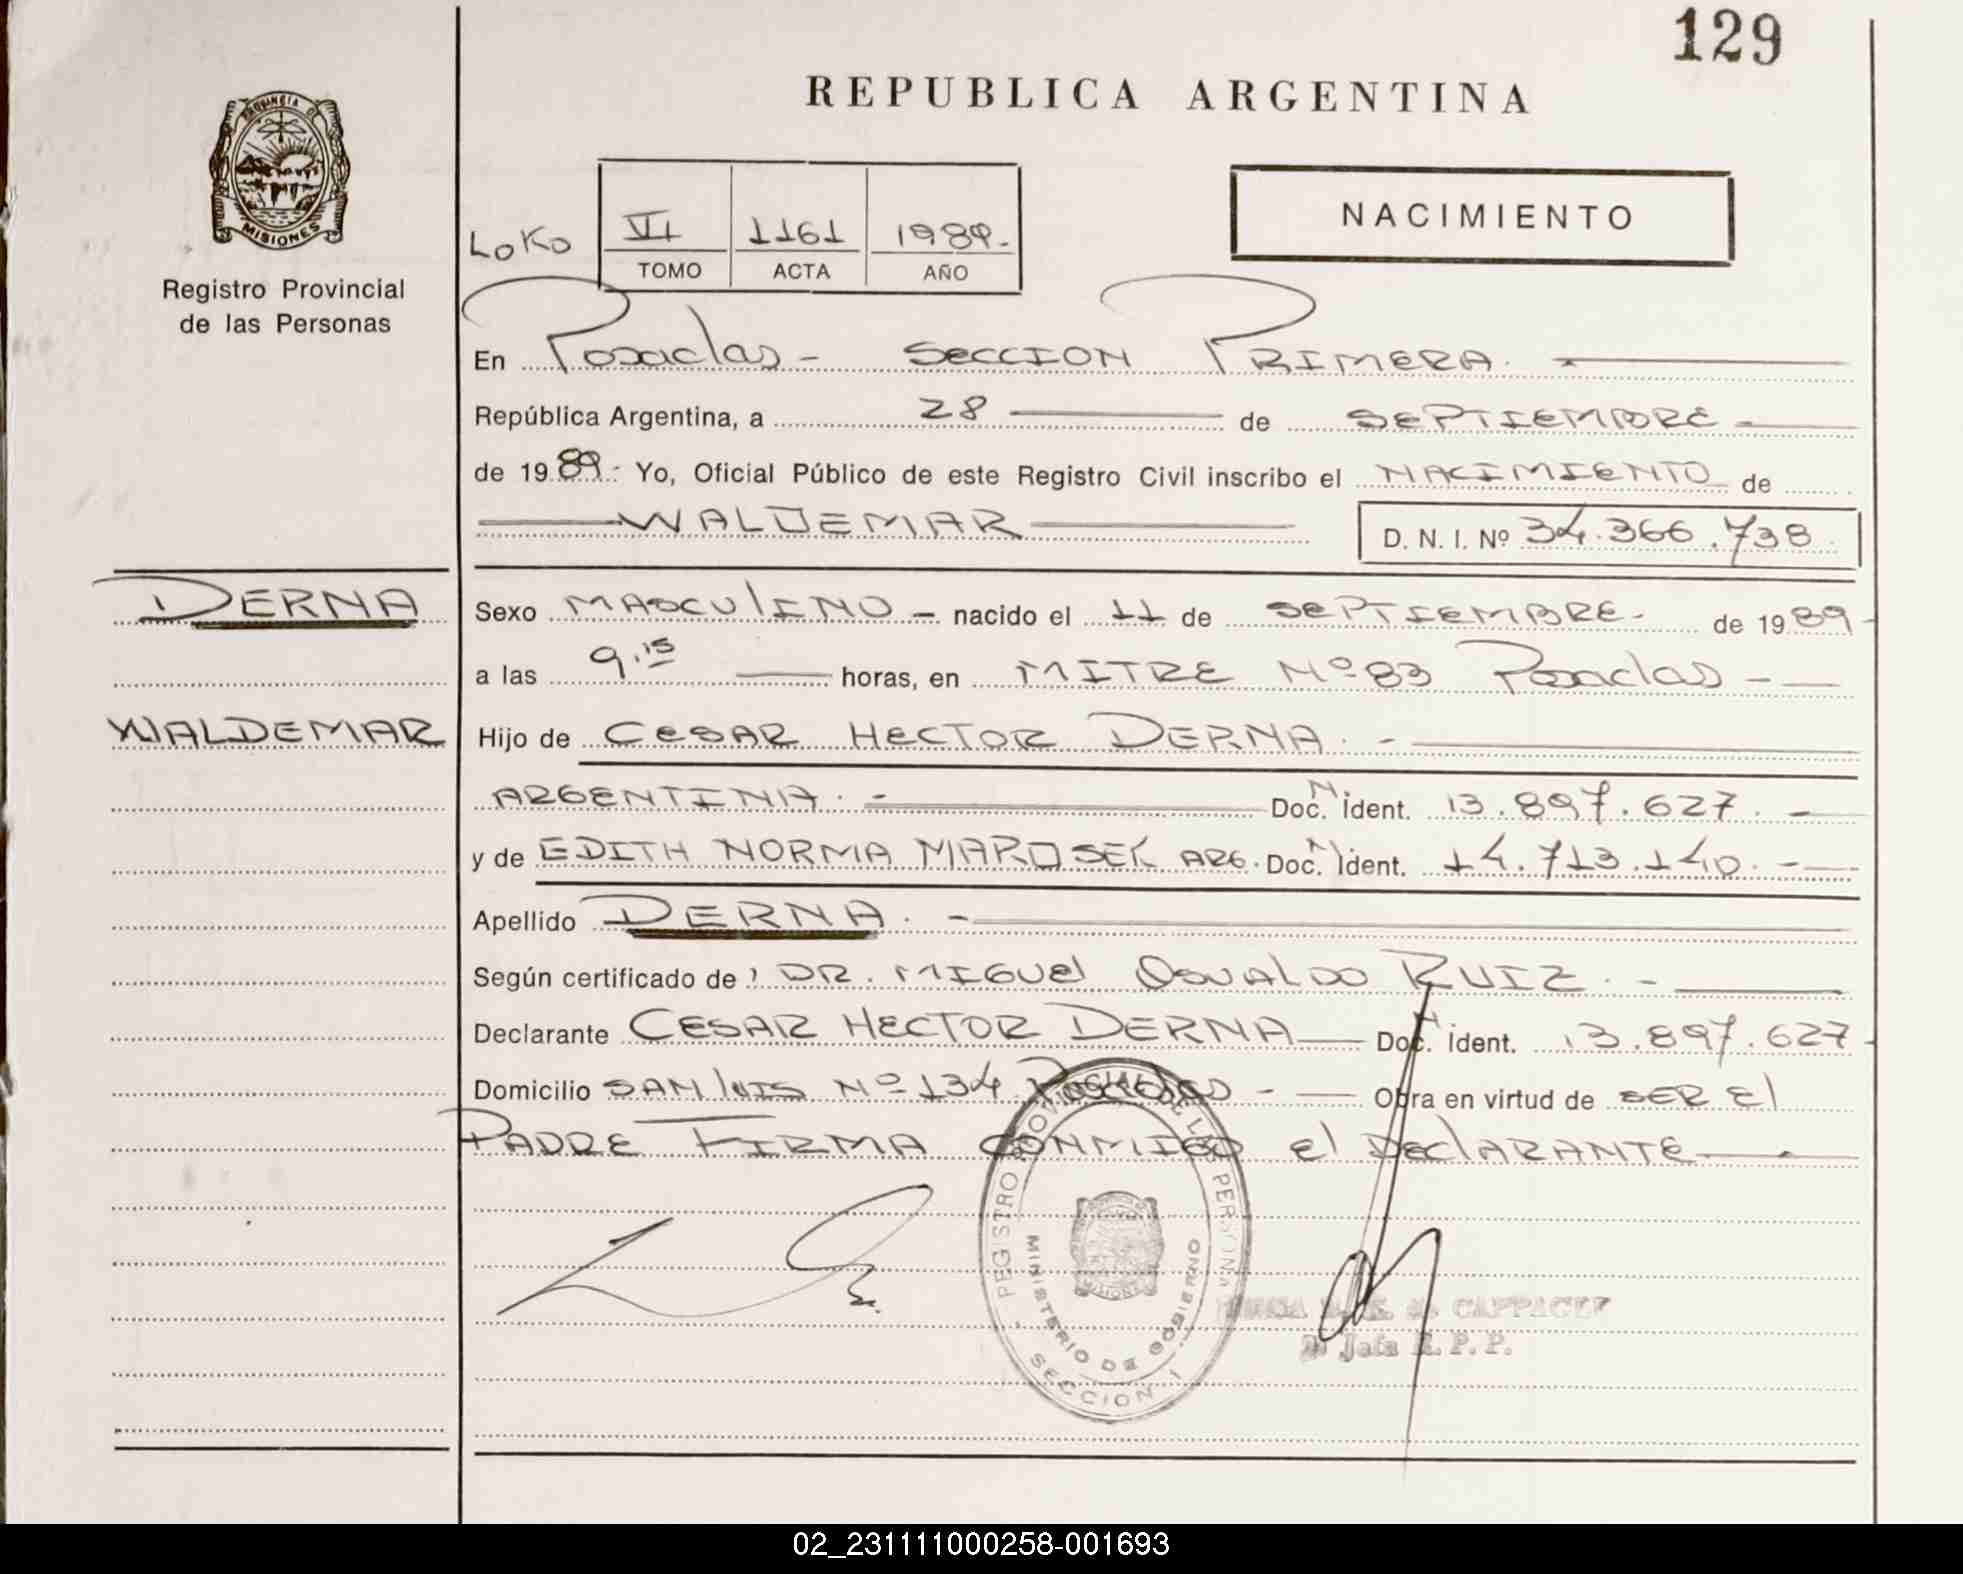 129
REPUBLICA ARGENTINA
PROVINCIA DE MISIONES
Registro Provincial
de las Personas
NACIMIENTO
VI 1161 1989.-
TOMO ACTA AÑO
En Posadas - SECCION PRIMERA.
República Argentina, a 28 de SEPTIEMBRE
de 1989.- Yo, Oficial Público de este Registro Civil inscribo el NACIMIENTO de
WALDEMAR D. N. I. Nº 34.366.738
DERNA
WALDEMAR
Sexo MASCULINO - nacido el 11 de SEPTIEMBRE - de 1989 -
a las 9.15 horas, en MITRE Nº 83 Posadas -
Hijo de CESAR HECTOR DERNA. -
ARGENTINA. - Doc. N Ident. 13.897.627. -
y de EDITH NORMA MAROSEK ARG. Doc. N Ident. 14.713.140. -
Apellido DERNA. -
Según certificado de: DR. MIGUEL OSVALDO RUIZ. -
Declarante CESAR HECTOR DERNA Doc. N Ident. 13.897.627 -
Domicilio SAN LUIS Nº 134 Posadas - Obra en virtud de SER El
PADRE FIRMA CONMIGO El DEClARANTE
REGISTRO PROVINCIAL DE LAS PERSONAS
MINISTERIO DE GOBIERNO
SECCION 1
CAPPACCI
Jefa R. P. P.
02_231111000258-001693